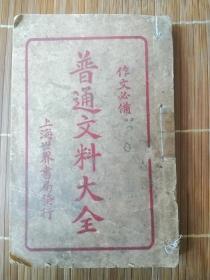 作文必備
普通文料大全
上海世界書局發行